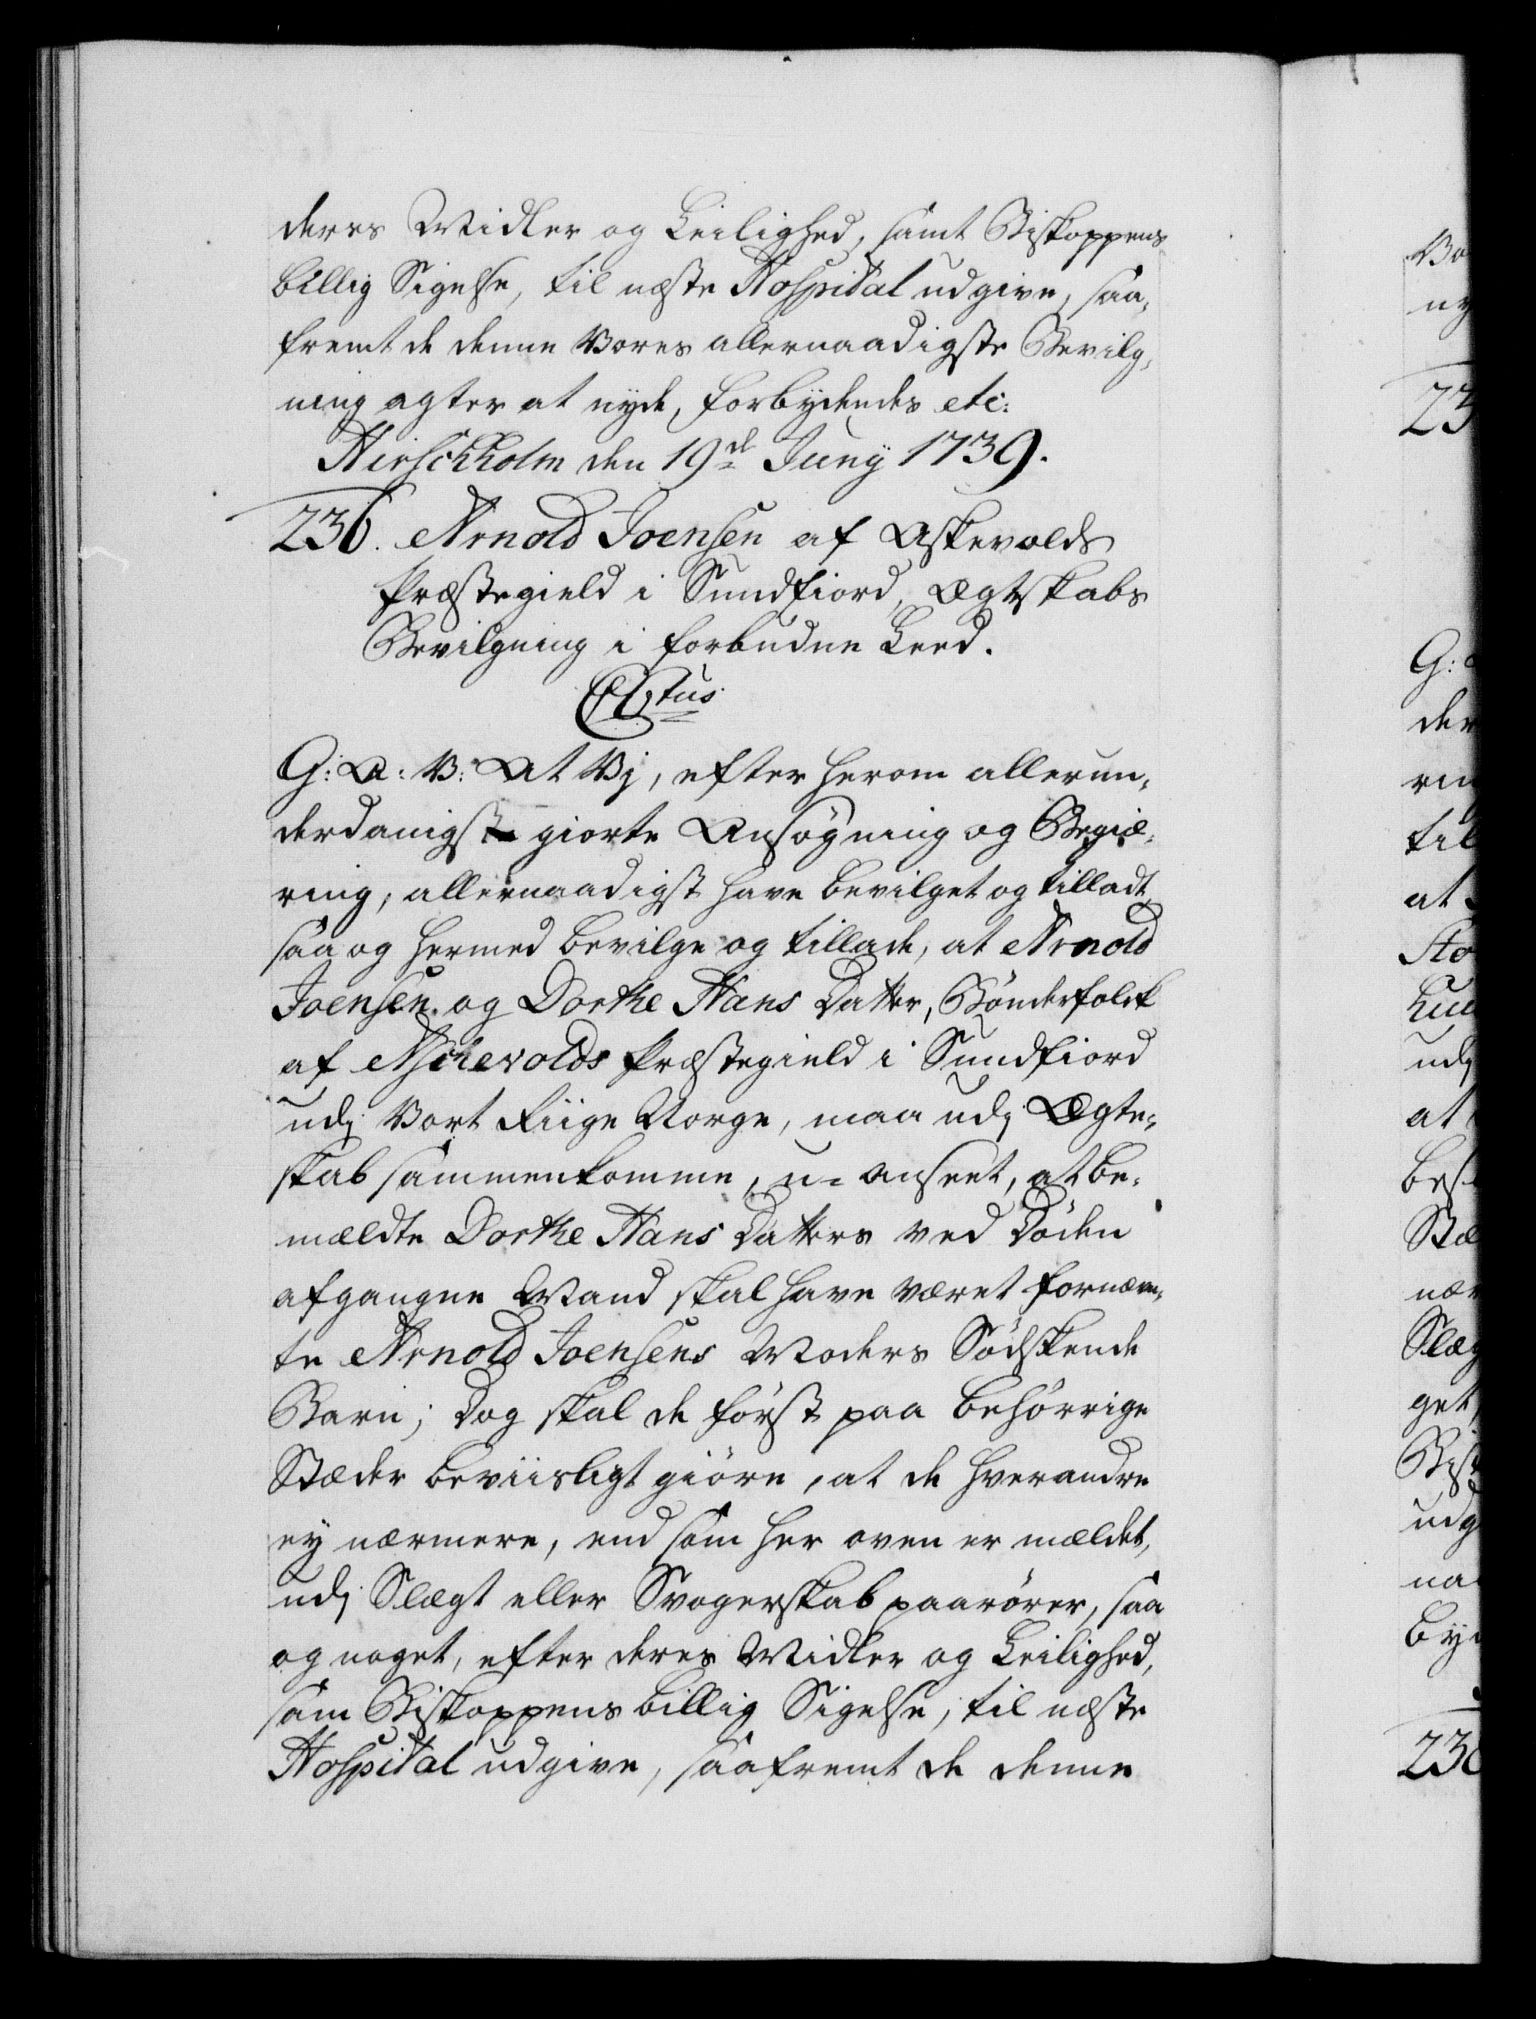 deres Midler og Leilighed, samt Biskoppens
billig Sigelse, til næste Hospital udgive, saa-
fremt de denne Vores allernaadigste Bevilg-
ning agter at nyde, forbydendes etc:
Hirschholm den 19de Junÿ 1739.
236. Arnold Joensen af Askevolds
Præstegield i Sundfiord, Ægteskabs
Bevilgning i forbudne Leed.
C6tus
G: A: V: At Vj, efter herom allerun-
derdanigst giorte Ansøgning og Begiæ-
ring, allernaadigst have bevilget og tilladt,
saa og hermed bevilge og tillade, at Arnold
Joensen og Dorthe Hans Datter, Bønderfolck
af Aschevolds Præstegield i Sundfiord
udj Vort Riige Norge, maa udj Ægte-
skab sammenkomme, u-anseet, at be-
mældte Dorthe Hans Datters ved Døden
afgangne Mand skal have været fornævn-
te Arnold Joensens Moders Sødskende
Barn; Dog skal de først paa behörrige
Stæder beviisligt giøre, at de hverandre
ey nærmere, end som her oven er mældet,
udj Slægt eller Svogerskab paarører, saa
og noget, efter deres Midler og Leilighed,
sam Biskoppens billig Sigelse, til næste
Hospital udgive, saafremt de denne